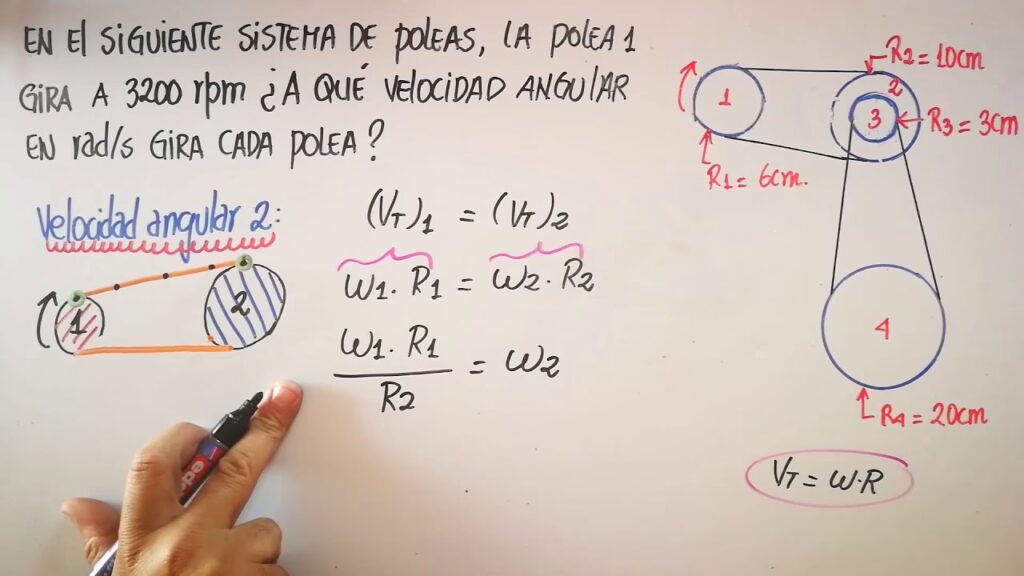 EN El SIGUIENTE SISTEMA DE POLEAS, LA POLEA 1
GIRA A 3200 rpm ¿A QUÉ VELOCIDAD ANGULAR
EN rad/s GIRA CADA POLEA?
Velocidad angular 2:
1
2
(VT)1 = (VT)2
W1. R1 = W2. R2
W1. R1
R2
= W2
1
R1 = 6cm.
R2 = 10cm
2
3
R3 = 3cm
4
R4 = 20cm
VT = W.R